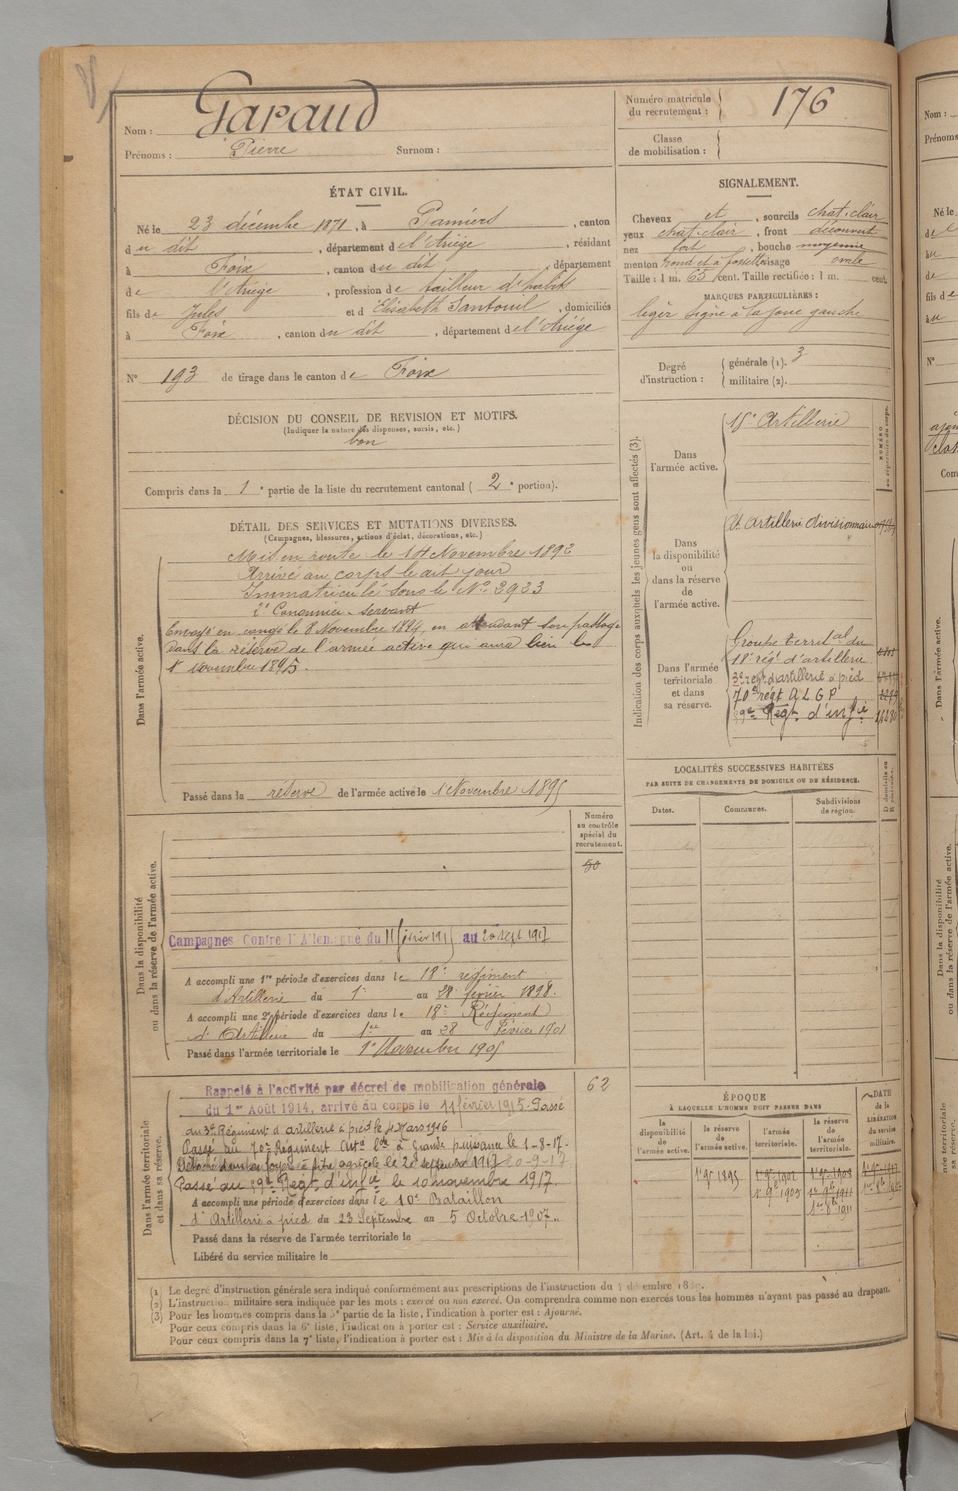 Nom : Garaud
Prénoms : Pierre Surnom :
Numéro matricule du recrutement : 176
Classe de mobilisation :
ÉTAT CIVIL.
Né le 23 décembre 1871, à Pamiers, canton
du dit, département de l'Ariège, résidant
à Foix, canton du dit, département
de l'Ariège, profession de tailleur d'habits
fils de Jules et d Elisabeth Santouil, domiciliés
à Foix, canton du dit, département de l'Ariège
N° 193 de tirage dans le canton de Foix
SIGNALEMENT.
Cheveux et, sourcils chat. clair
yeux chat. clair, front découvert
nez fort, bouche moyenne
menton rond et à fossette visage ovale
Taille : 1 m. 65 cent. Taille rectifiée : 1 m. cent.
MARQUES PARTICULIÈRES :
léger signe à la joue gauche
Degré d'instruction : générale (1). 3
militaire (2).
DÉCISION DU CONSEIL DE REVISION ET MOTIFS.
(Indiquer la nature des dispenses, sursis, etc.)
bon
Compris dans la 1e partie de la liste du recrutement cantonal (2e portion).
DÉTAIL DES SERVICES ET MUTATIONS DIVERSES.
(Campagnes, blessures, actions d'éclat, décorations, etc.)
Dans l'armée active.
Mis en route le 14 Novembre 1892
Arrivé au corps le dit jour
Immatriculé sous le N° 3933
2e Canonnier servant
Envoyé en congé le 8 Novembre 1894, en attendant son passage
dans la réserve de l'armée active qui aura lieu le
1er novembre 1895.
Passé dans la réserve de l'armée active le 1er Novembre 1895
Indication des corps auxquels les jeunes gens sont affectés (3).
NUMÉRO
Dans l'armée active.
18e Artillerie
Dans la disponibilité ou dans la réserve de l'armée active.
Artillerie divisionnaire
Dans l'armée territoriale et dans sa réserve.
Groupe territal du
18e rég. d'artillerie
3e regt d'artillerie à pied
70e régt A L G P
Régt d'infie
LOCALITÉS SUCCESSIVES HABITÉES
PAR SUITE DE CHANGEMENTS DE DOMICILE OU DE RÉSIDENCE.
Dates. Communes. Subdivisions de région.
Numéro au contrôle spécial du recrutement.
50
Dans la disponibilité ou dans la réserve de l'armée active.
Campagnes Contre l'Allemagne du 11 février 1915 au 20 sept 1917
A accompli une 1re période d'exercices dans le 18e régiment
d'Artillerie du 1er au 28 février 1898.
A accompli une 2e période d'exercices dans le 18e Régiment
d'Artillerie du 1er au 28 février 1901
Passé dans l'armée territoriale le 1er Novembre 1905
62
Dans l'armée territoriale et dans sa réserve.
Rappelé à l'activité par décret de mobilisation générale
du 1er Août 1914, arrivé au corps le 11 février 1915. Passé
au 3e Régiment d'artillerie à pied le 4 Mars 1916
Passé au 70e Régiment Artie Lde à Grande puissance le 1-8-17.
Détaché dans ses foyers à titre agricole le 20 septembre 1917 20-9-17
Passé au Régt d'infie le 10 novembre 1917
A accompli une période d'exercices dans le 10e Bataillon
d'Artillerie à pied du 23 Septembre au 5 Octobre 1907.
Passé dans la réserve de l'armée territoriale le
Libéré du service militaire le
ÉPOQUE
À LAQUELLE L'HOMME DOIT PASSER DANS
la disponibilité de l'armée active.
la réserve de l'armée active.
l'armée territoriale.
la réserve de l'armée territoriale.
DATE de la LIBÉRATION du service militaire.
1er 9bre 1895
1er 9bre 1905
(1) Le degré d'instruction générale sera indiqué conformément aux prescriptions de l'instruction du
(2) L'instruction militaire sera indiquée par les mots : exercé ou non exercé. On comprendra comme non exercés tous les hommes n'ayant pas passé au drapeau.
(3) Pour les hommes compris dans la 5e partie de la liste, l'indication à porter est : Ajourné.
Pour ceux compris dans la 6e liste, l'indication à porter est : Service auxiliaire.
Pour ceux compris dans la 7e liste, l'indication à porter est : Mis à la disposition du Ministre de la Marine. (Art. 4 de la loi.)